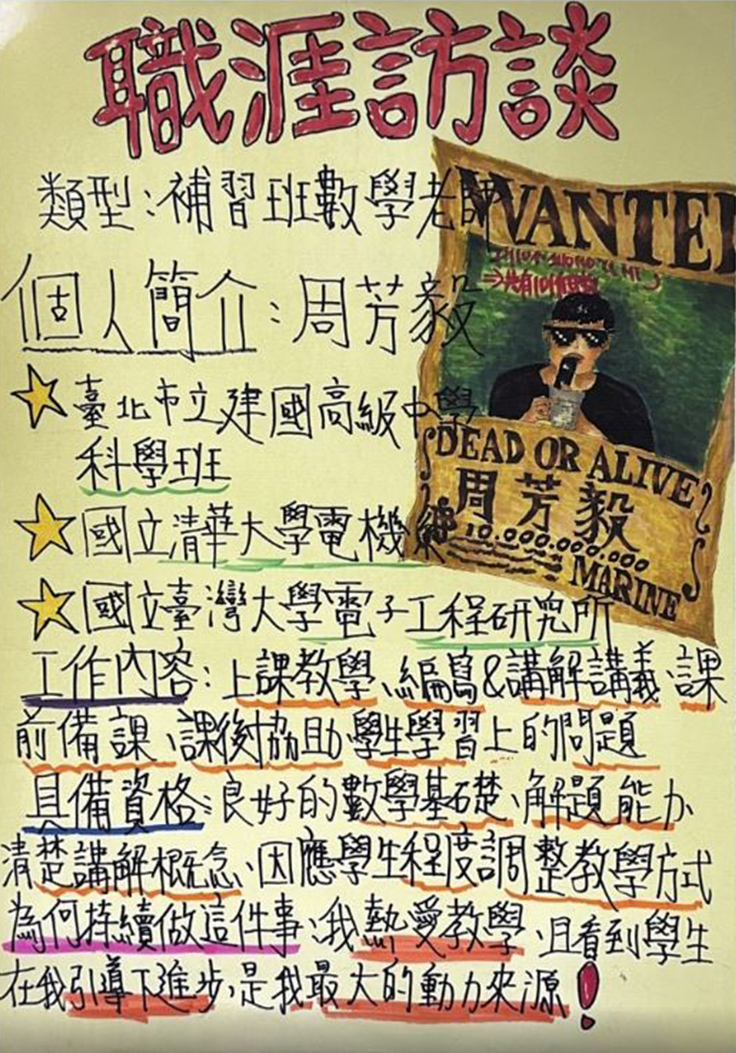 職涯訪談
類型:補習班數學老師
WANTED
個人簡介:周芳毅
☆臺北市立建國高級中學
科學班
DEAD OR ALIVE
周芳毅
10.000.000.000
MARINE
☆國立清華大學電機系
☆國立臺灣大學電子工程研究所
工作內容:上課教學、編寫&講解講義、課
前備課、課後協助學生學習上的問題
具備資格:良好的數學基礎、解題能力、
清楚講解概念、因應學生程度調整教學方式
為何持續做這件事:我熱愛教學,且看到學生
在我引導下進步,是我最大的動力來源!